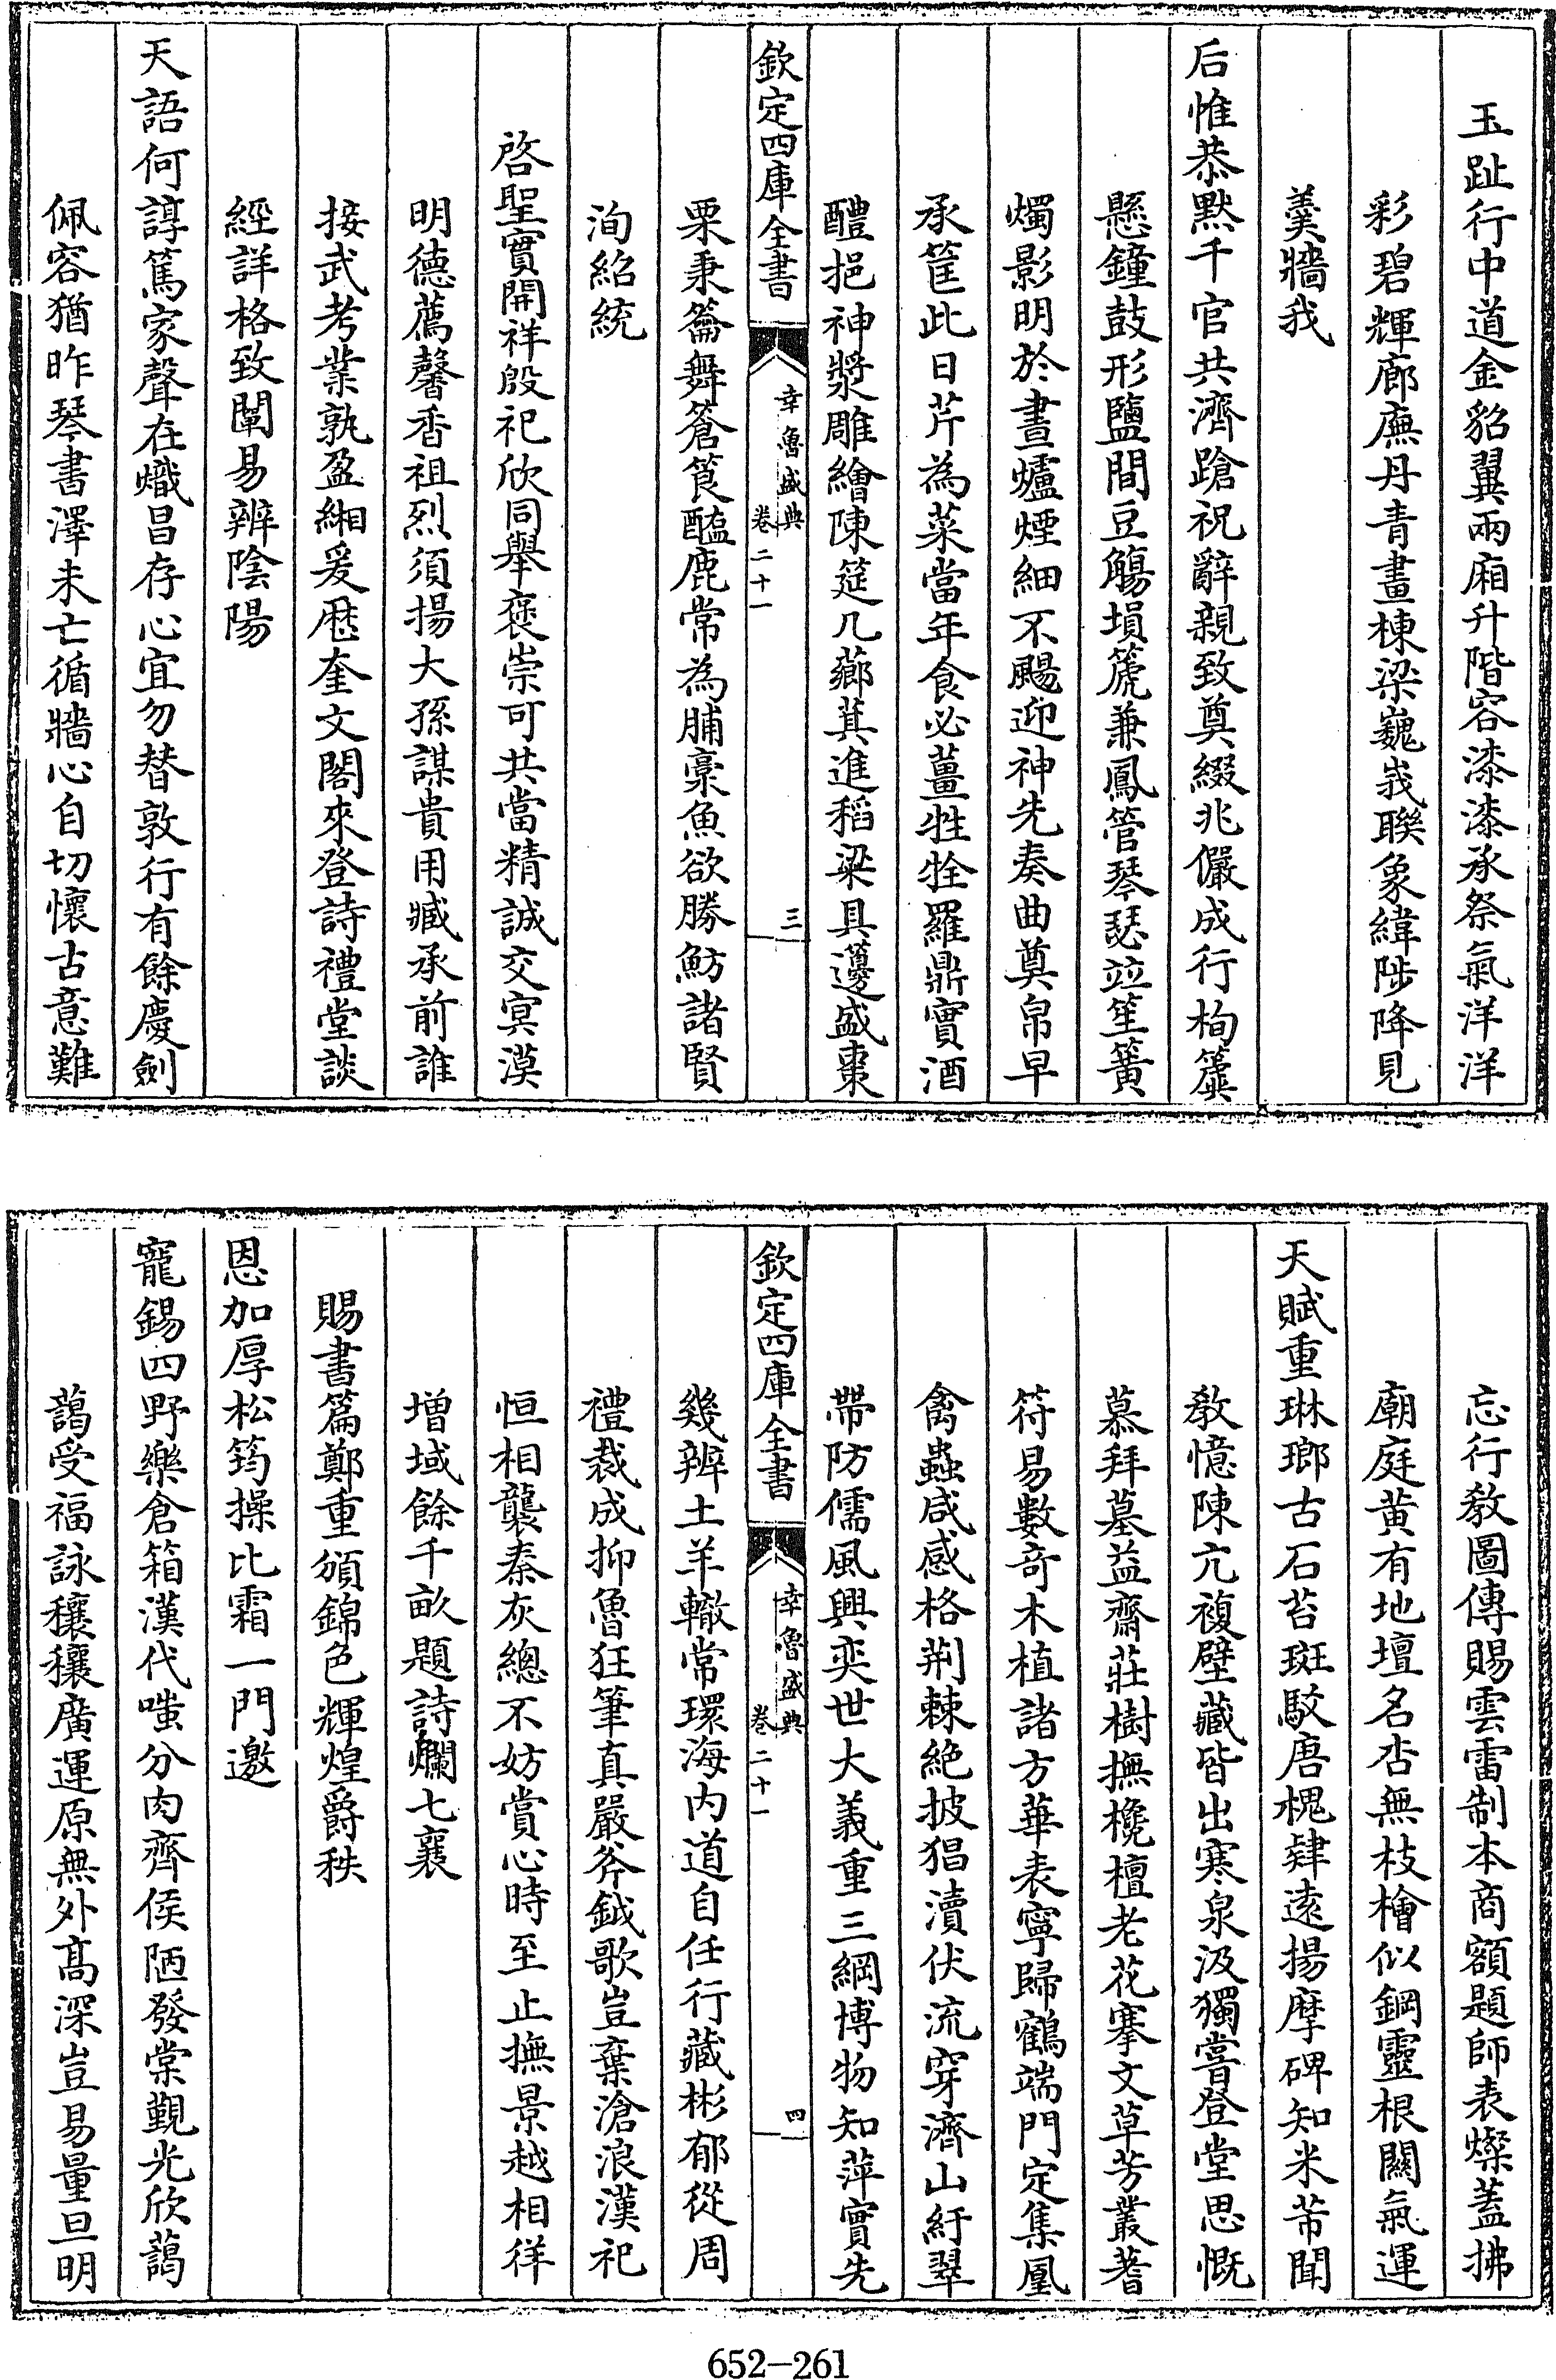 玉趾行中道金貂翼兩廂升階容漆漆承祭氣洋洋
彩碧輝廊廡丹青畫棟梁巍峩聯象緯陟降見
羹牆我
后惟恭黙千官共濟蹌祝辭親致奠綴兆儼成行栒簴
懸鐘鼓形鹽間豆觴塤箎兼鳳管琴瑟竝笙簧
燭影明於晝爐煙細不颺迎神先奏曲奠帛早
承筐此日芹為菜當年食必薑牲牷羅鼎實酒
醴挹神漿雕繪陳筵几薌萁進稻粱具籩盛棗
欽定四庫全書
幸魯盛典
卷二十一
三
栗秉籥舞蒼筤醢鹿常為脯槀魚欲勝魴諸賢
洵紹統
啓聖實開祥殷祀欣同舉褒崇可共當精誠交冥漠
明德薦馨香祖烈須揚大孫謀貴用臧承前誰
接武考業孰盈緗爰歴奎文閣來登詩禮堂談
經詳格致闡易辨陰陽
天語何諄篤家聲在熾昌存心宜勿替敦行有餘慶劍
佩容猶昨琴書澤未亡循牆心自切懷古意難
忘行敎圖傳賜雲雷制本商額題師表燦蓋拂
廟庭黄有地壇名杏無枝檜似鋼靈根關氣運
天賦重琳瑯古石苔斑駮唐槐肄遠揚摩碑知米芾聞
敎憶陳亢複壁藏皆出寒泉汲獨嘗登堂思慨
慕拜墓益齋莊樹撫欃檀老花搴文草芳叢蓍
符易數奇木植諸方華表寧歸鶴端門定集凰
禽蟲咸感格荆棘絶披猖瀆伏流穿濟山紆翠
帶防儒風興奕世大義重三綱博物知萍實先
欽定四庫全書
幸魯盛典
卷二十一
四
幾辨土羊轍常環海内道自任行藏彬郁從周
禮裁成抑魯狂筆真嚴斧鉞歌豈棄滄浪漢祀
恒相襲秦灰總不妨賞心時至止撫景越相徉
増域餘千畝題詩爛七襄
賜書篇鄭重頒錦色輝煌爵秩
恩加厚松筠操比霜一門邀
寵錫四野樂倉箱漢代嗤分肉齊侯陋發棠覲光欣藹
藹受福詠穰穰廣運原無外髙深豈易量旦明
652-261